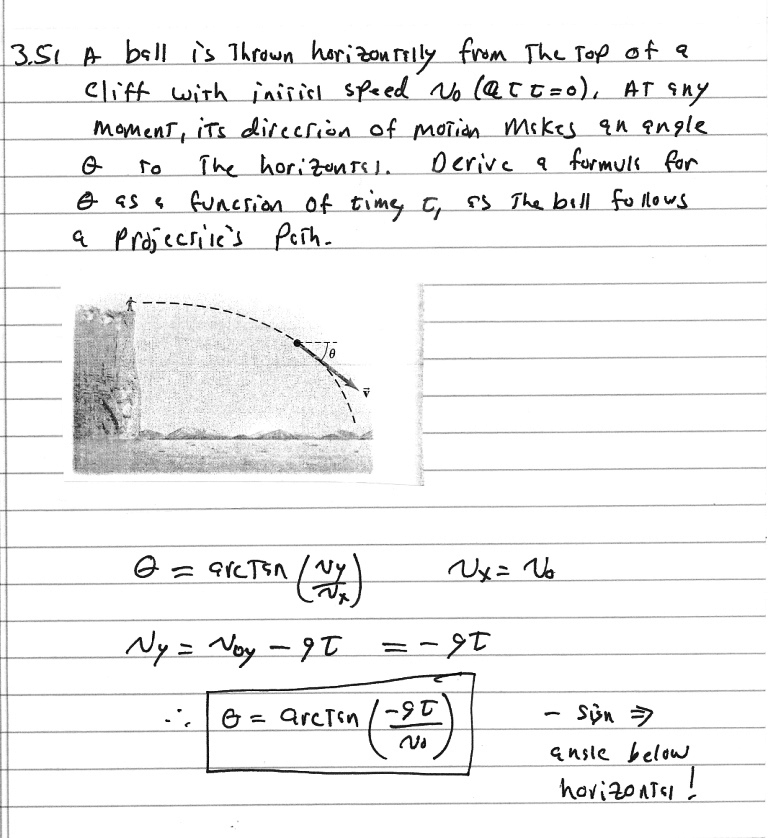 3.51 A ball is Thrown horizontally from The Top of a
cliff with initial speed v₀ (at t=0). AT any
moment, its direction of motion makes an angle
θ to The horizontal. Derive a formula for
θ as a function of time t, as The ball follows
a projectile's path.
θ
v⃗
θ = arcTan (vy/vx) vx = v₀
vy = v₀y - gt = - gt
∴ θ = arcTan (-gt/v₀) - sign ⇒
angle below
horizontal!